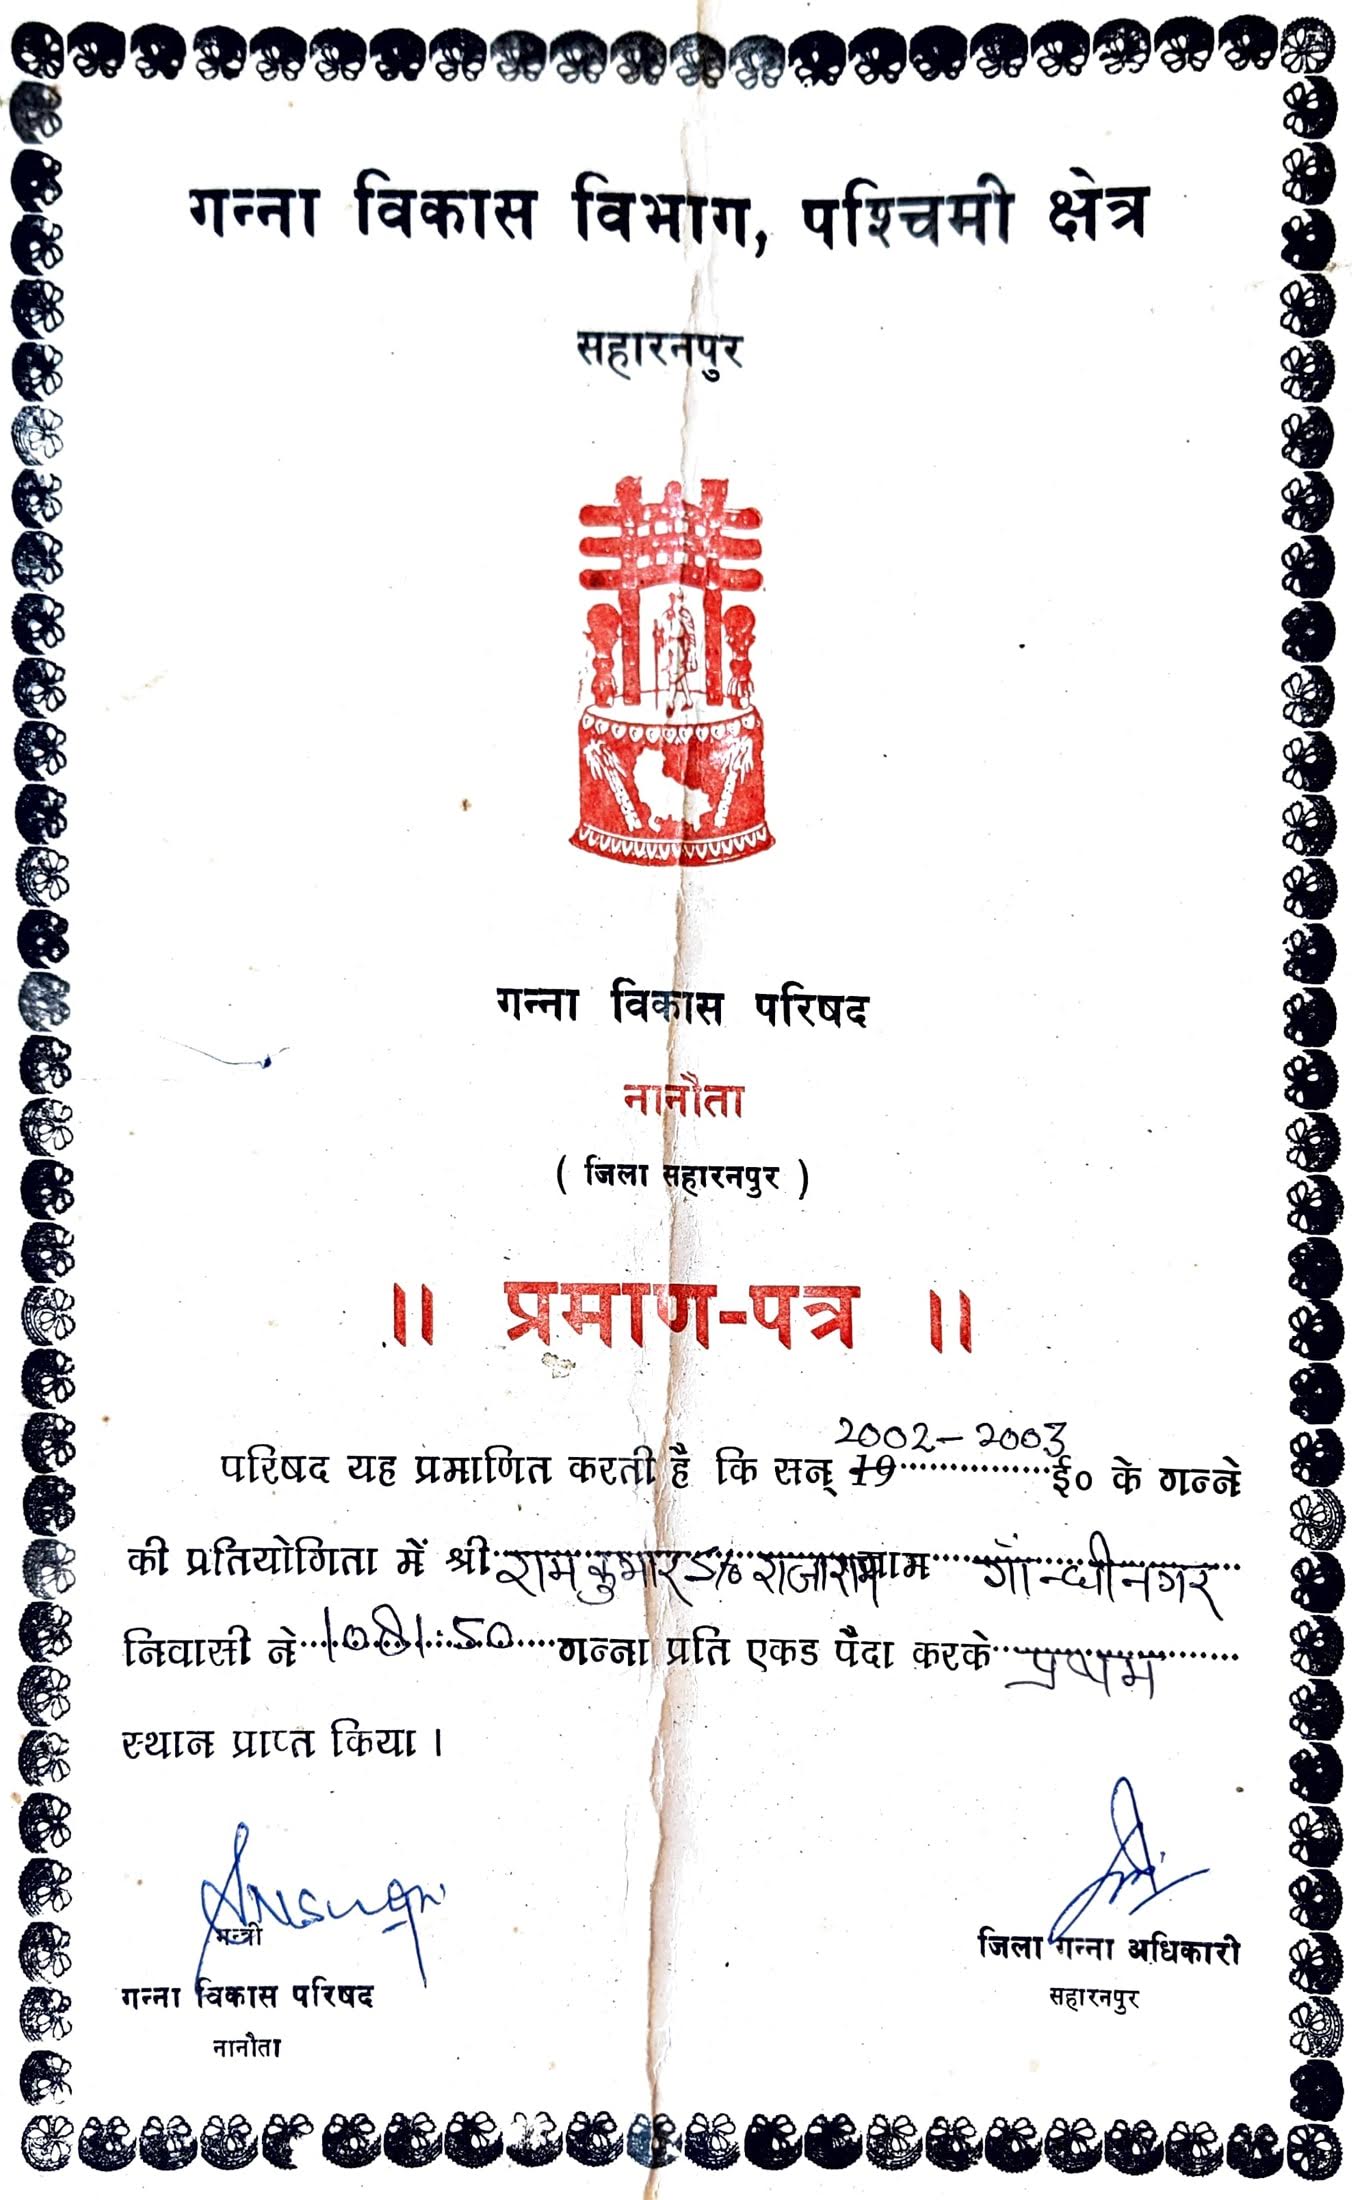 गन्ना विकास विभाग, पश्चिमी क्षेत्र
सहारनपुर
गन्ना विकास परिषद
नानौता
( जिला सहारनपुर )
।। प्रमाण-पत्र ।।
2002-2003
परिषद यह प्रमाणित करती है कि सन् 19..............ई० के गन्ने
की प्रतियोगिता में श्री रामकुमार S/o राजाराम ग्राम गाँन्धीनगर
निवासी ने 1081.50 गन्ना प्रति एकड पैदा करके प्रथम
स्थान प्राप्त किया ।
मन्त्री
गन्ना विकास परिषद
नानौता
जिला गन्ना अधिकारी
सहारनपुर